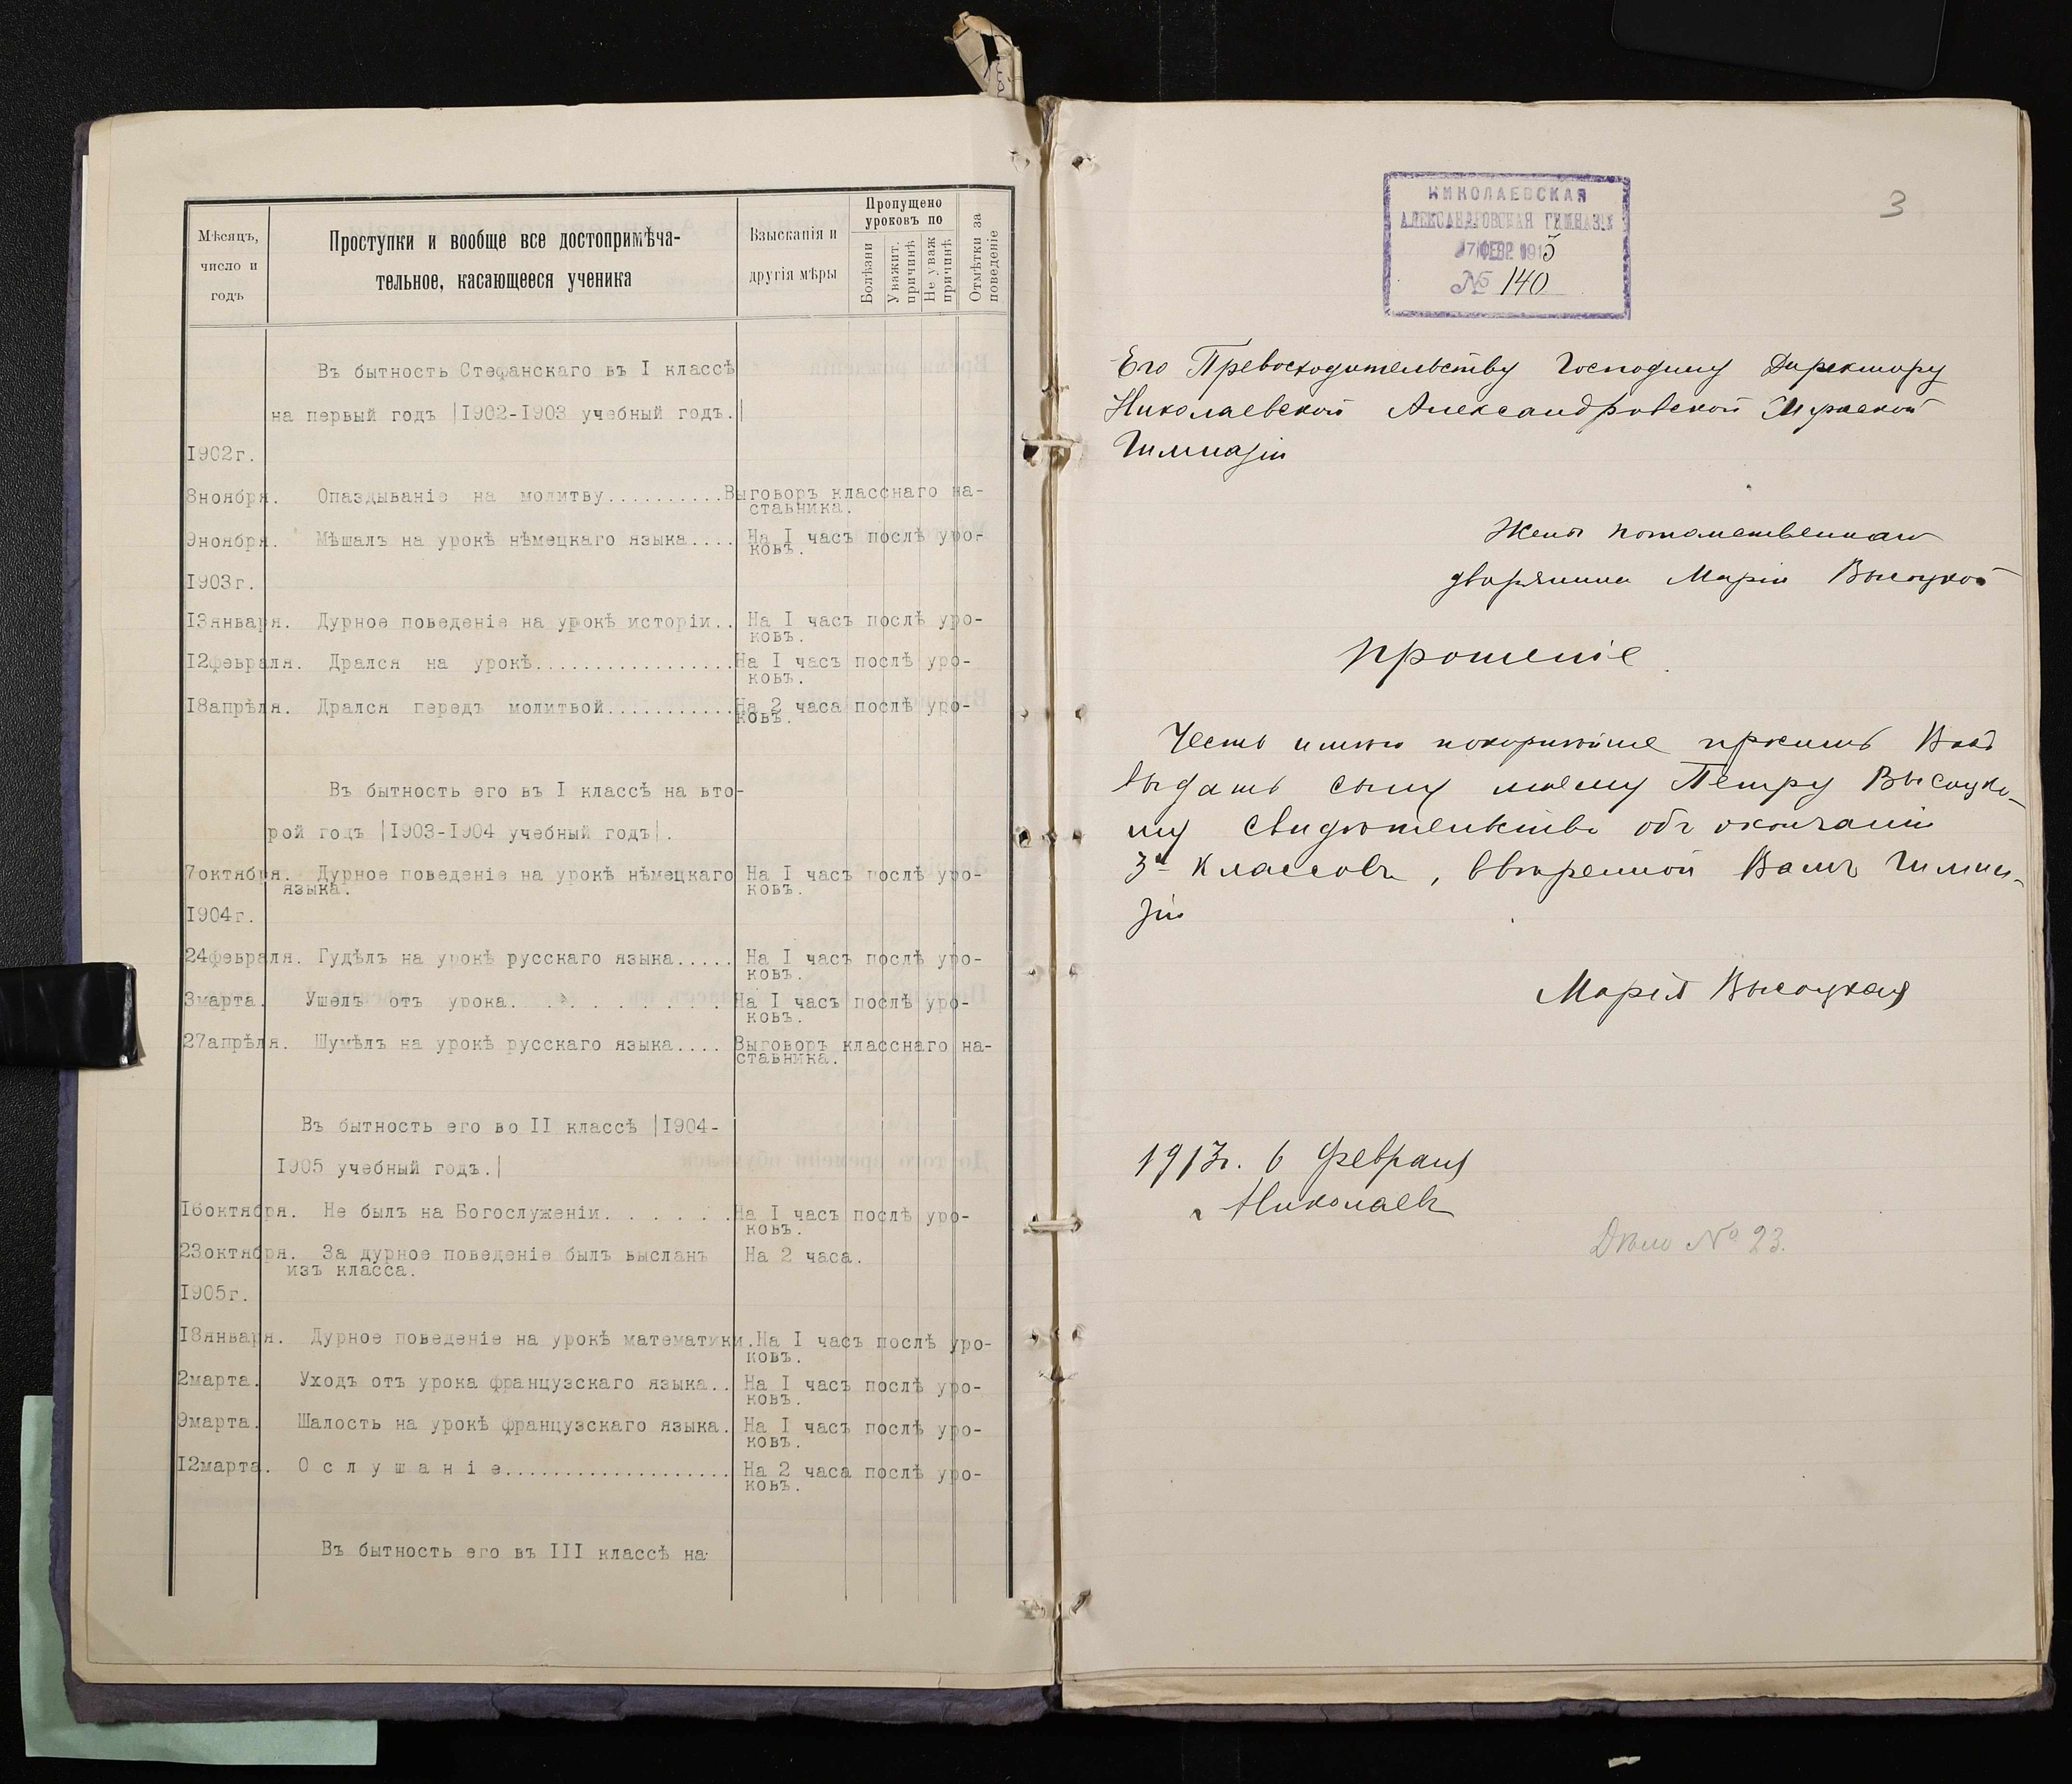 Мѣсяцъ, число и годъ
Проступки и вообще все достопримѣча-
тельное, касающееся ученика
Взысканія и
другія мѣры
Пропущено
уроковъ по
Болѣзни
Уважит. причинѣ
Не уваж причинѣ
Отмѣтки за поведеніе
Въ бытность Стефанскаго въ I классѣ
на первый годъ |1902-1903 учебный годъ.|
1902г.
8ноября. Опаздываніе на молитву..........Выговоръ класснаго на-
ставника.
9ноября. Мѣшалъ на урокѣ нѣмецкаго языка.... На I часъ послѣ уро-
ковъ.
1903г.
13января. Дурное поведеніе на урокѣ исторіи.. На I часъ послѣ уро-
ковъ.
12февраля. Дрался на урокѣ.................На I часъ послѣ уро-
ковъ.
18апрѣля. Дрался передъ молитвой...........На 2 часа послѣ уро-
ковъ.
Въ бытность его въ I классѣ на вто-
рой годъ |1903-1904 учебный годъ|.
7октября. Дурное поведеніе на урокѣ нѣмецкаго На I часъ послѣ уро-
языка. ковъ.
1904г.
24февраля. Гудѣлъ на урокѣ русскаго языка..... На I часъ послѣ уро-
ковъ.
3марта. Ушелъ отъ урока. . . . . . . . . На I часъ послѣ уро-
ковъ.
27апрѣля. Шумѣлъ на урокѣ русскаго языка.... Выговоръ класснаго на-
ставника.
Въ бытность его во II классѣ |1904-
1905 учебный годъ.|
16октября. Не былъ на Богослуженіи. . . . . .На I часъ послѣ уро-
ковъ.
23октября. За дурное поведеніе былъ высланъ На 2 часа.
изъ класса.
1905г.
18января. Дурное поведеніе на урокѣ математики.На I часъ послѣ уро-
ковъ.
2марта. Уходъ отъ урока французскаго языка.. На I часъ послѣ уро-
ковъ.
9марта. Шалость на урокѣ французскаго языка. На I часъ послѣ уро-
ковъ.
12марта. О с л у ш а н і е................... На 2 часа послѣ уро-
ковъ.
Въ бытность его въ III классѣ на
3
НИКОЛАЕВСКАЯ
АЛЕКСАНДРОВСКАЯ ГИМНАЗІЯ
7 ФЕВР 1913
№ 140
Его Превосходительству Господину Директору
Николаевской Александровской Мужской
Гимназіи
Жены потомственнаго
дворянина Маріи Высоцкой
Прошеніе.
Честь имѣю покорнѣйше просить Васъ
выдать сыну моему Петру Высоцко-
му свидѣтельство объ окончаніи
3х классовъ, ввѣренной Вамъ гимна-
зіи
Марія Высоцкая
1913г. 6 Февраля
г Николаевъ
Дѣло № 23.